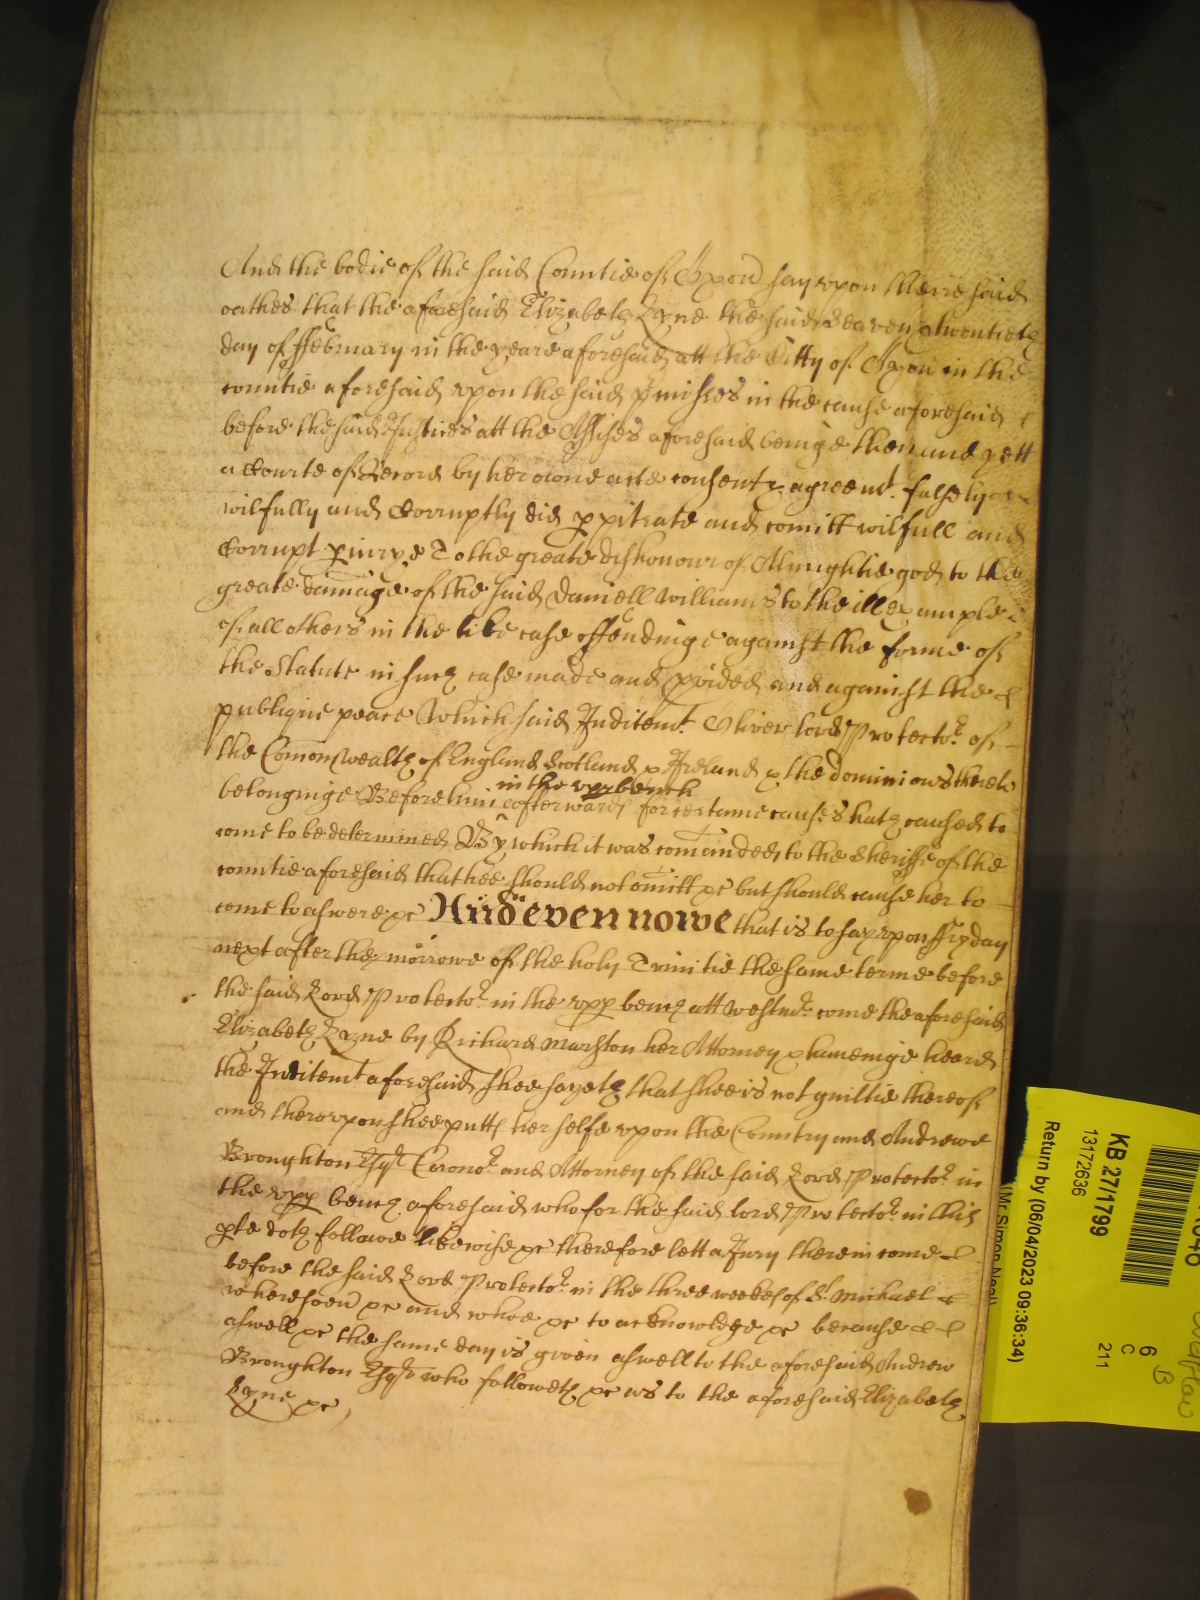 And the bodie of the said Countie of Oxon say upon theire said
oathes that the aforesaid Elizabeth Lyne the said Seaven & twentieth
day of ffebruary in the yeare aforesaid att the Citty of Oxon in the
countie aforesaid upon the said p'misses in the cause aforesaid
before the said Justices att the Assises aforesaid beinge then and yett
a Courte of Record by her owne acte consent & agreemt. falsely
wilfully and Corruptly did ppitrate and comitt wilfull and
Corrupt piurye To the greate dishonour of Almightie god to the
greate damage of the said Daniell Williams to the ill example
of all others in the like case offendinge against the forme of
the Statute in such case made and pvided and against the
publique peace Which said Inditemt. Oliver lord Protector. of
the Comonwealth of England Scotland & Ireland & the dominions thereto
belonginge Before him afterwards for certaine causes hath caused to
in the upp bench
come to be determined By which it was comanded to the Sheriffe of the
countie aforesaid that hee should not omitt &c but should cause her to
come to aswere &c And even nowe that is to say upon ffryday
next after the morrowe of the holy Trinitie the same terme before
the said Lord Protector. in the upp bench att Westmr. come the aforesaid
Elizabeth Lyne by Richard Marston her Attorney & haueinge heard
the Inditemt aforesaid shee sayeth that shee is not guiltie thereof
and thereupon shee putts her selfe upon the Country and Andrewe
Broughton Esqr. Coronor. and Attorney of the said Lord Protector. in
the upp bench aforesaid who for the said lord Protector. in this
pte doth followe likewise &c therefore lett a Jury therein come
before the said Lord Protector. in the three weekes of St. Michael
wheresoeu &c and whoe &c to acknowledge &c because
aswell &c the same day is given aswell to the aforesaid Andrew
Broughton Esqr. who followeth &c as to the aforesaid Elizabeth
Lyne &c
KB 27/1799
13172636
Return by (06/04/2023 09:36:34)
6
C
211